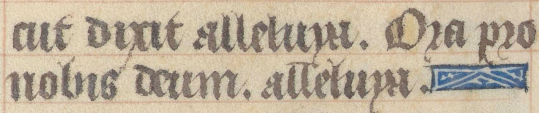 cut dixit alleluya. Ora pro
nobis deum. alleluya.